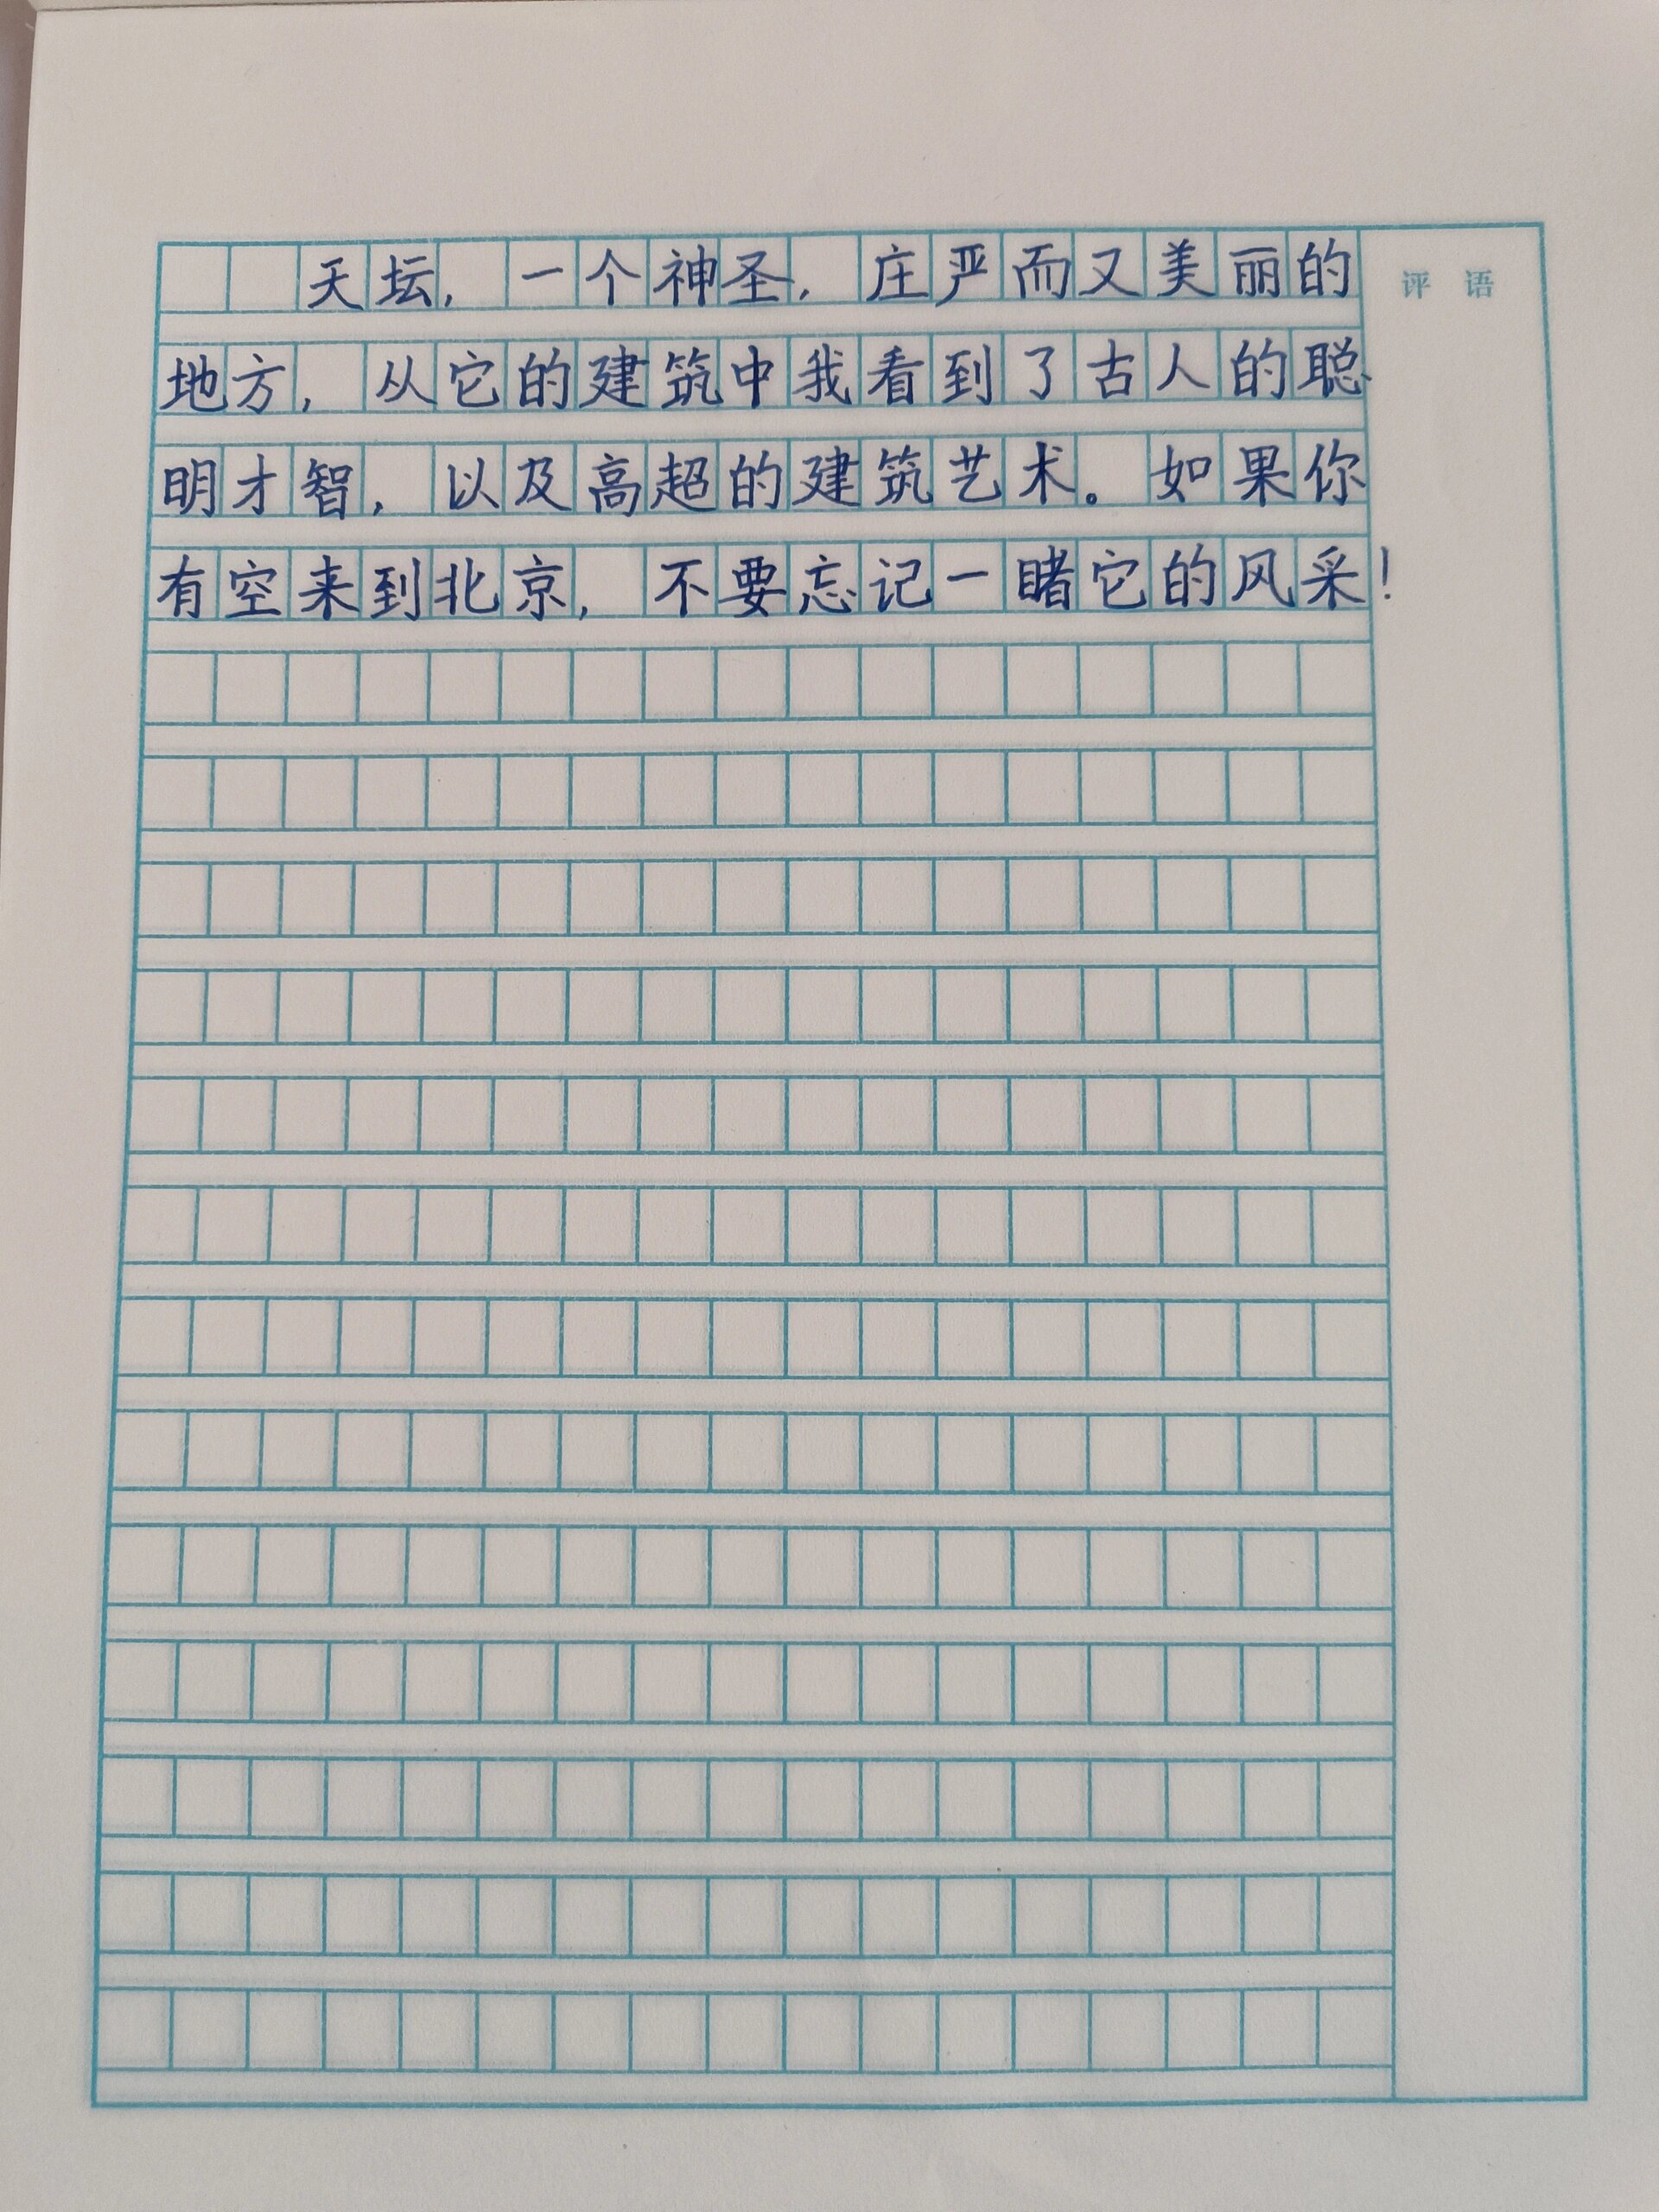 天坛，一个神圣，庄严而又美丽的
评语
地方，从它的建筑中我看到了古人的聪
明才智，以及高超的建筑艺术。如果你
有空来到北京，不要忘记一睹它的风采！